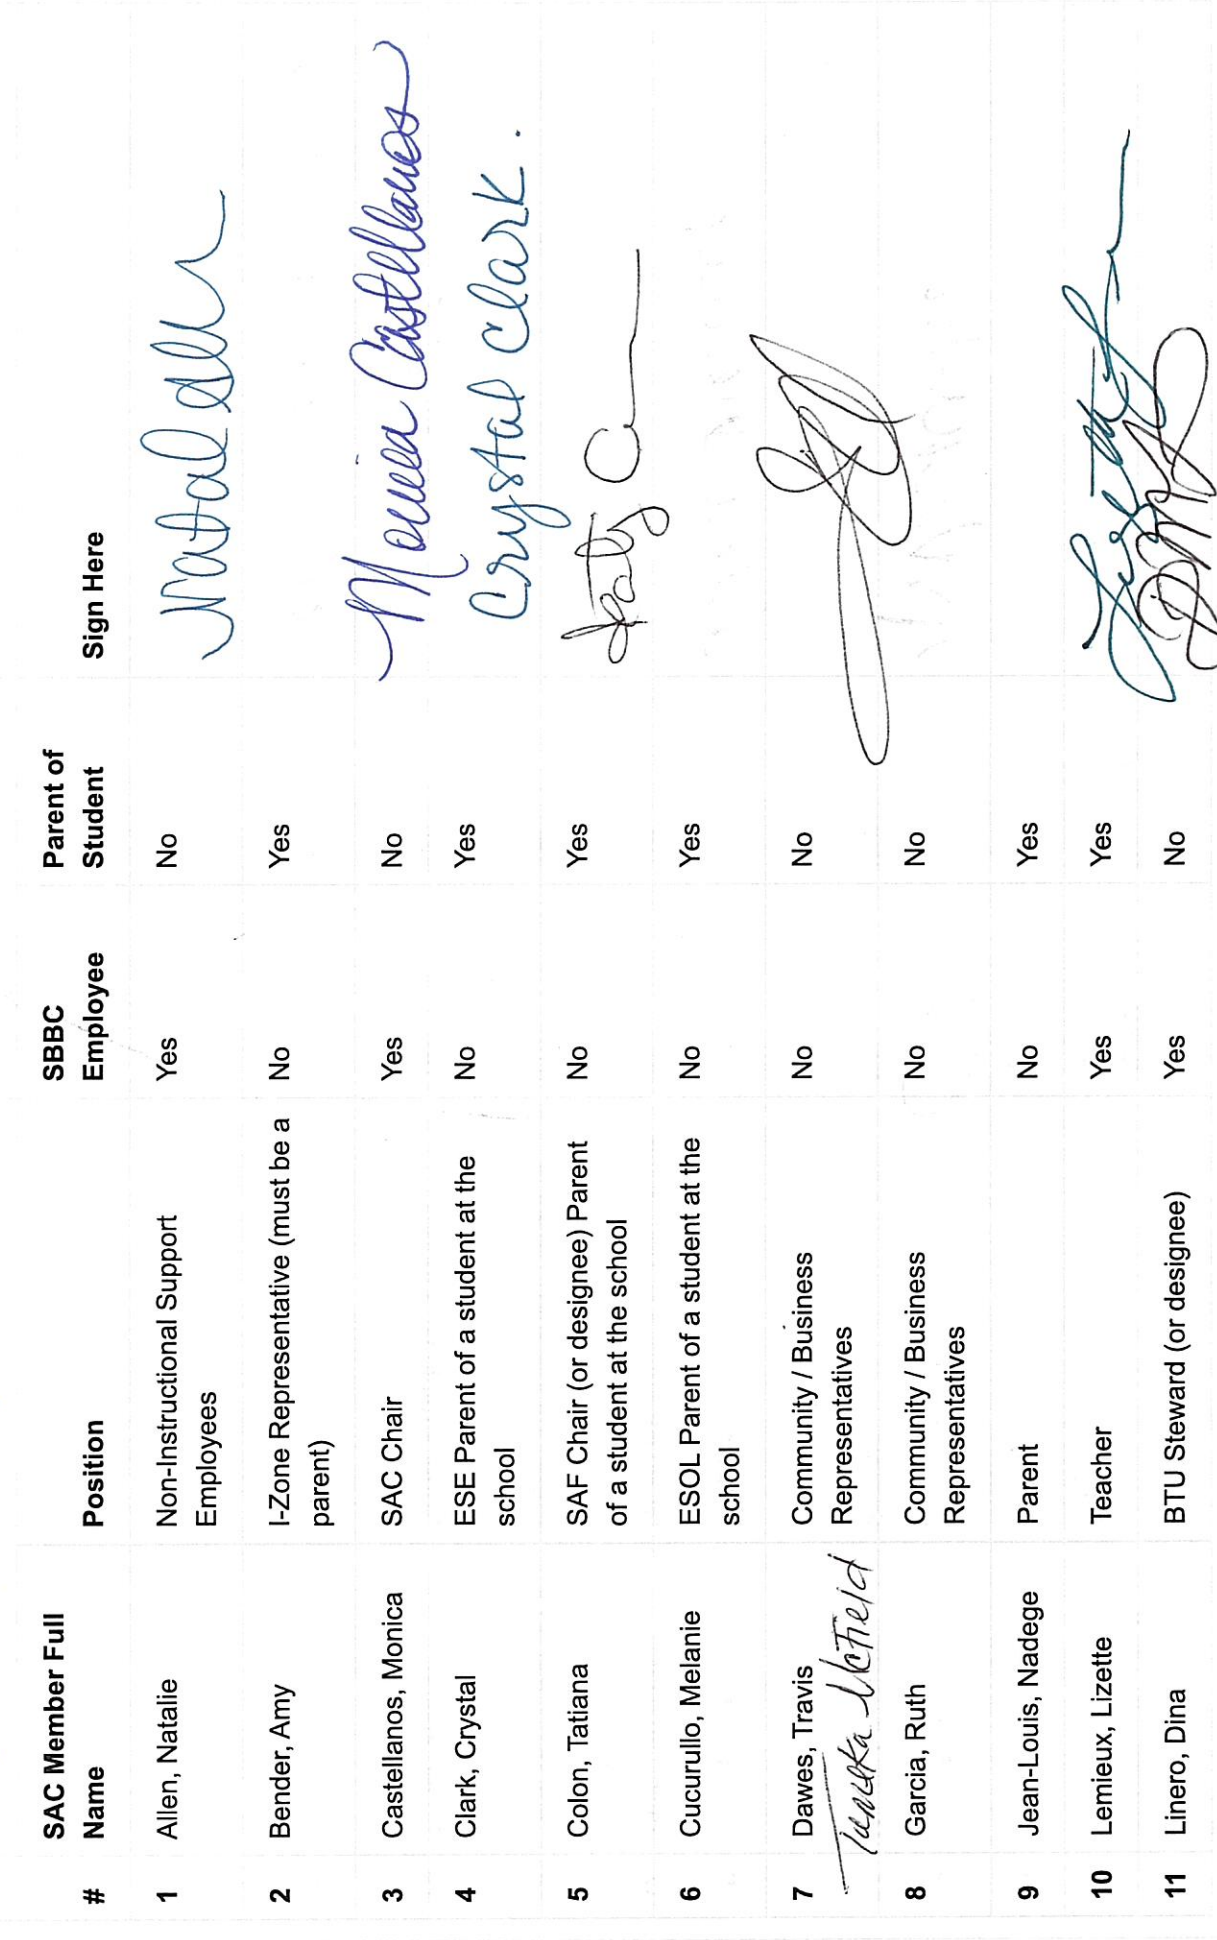 SAC Member Full Name Position SBBC Employee Parent of Student Sign Here
# 
1 Allen, Natalie Non-Instructional Support Employees Yes No Natal Allen
2 Bender, Amy I-Zone Representative (must be a parent) No Yes
3 Castellanos, Monica SAC Chair Yes No Monica Castellanos
4 Clark, Crystal ESE Parent of a student at the school No Yes Crystal Clark.
5 Colon, Tatiana SAF Chair (or designee) Parent of a student at the school No Yes
6 Cucurullo, Melanie ESOL Parent of a student at the school No Yes
7 Dawes, Travis Community / Business Representatives No No
McField
8 Garcia, Ruth Community / Business Representatives No No
9 Jean-Louis, Nadege Parent No Yes
10 Lemieux, Lizette Teacher Yes Yes
11 Linero, Dina BTU Steward (or designee) Yes No